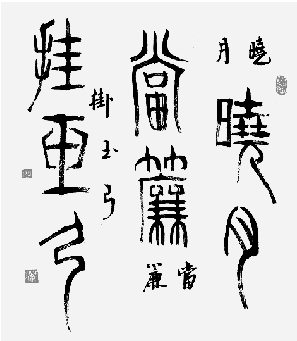 曉月
曉月
當簾
當簾
掛玉弓
挂玉弓